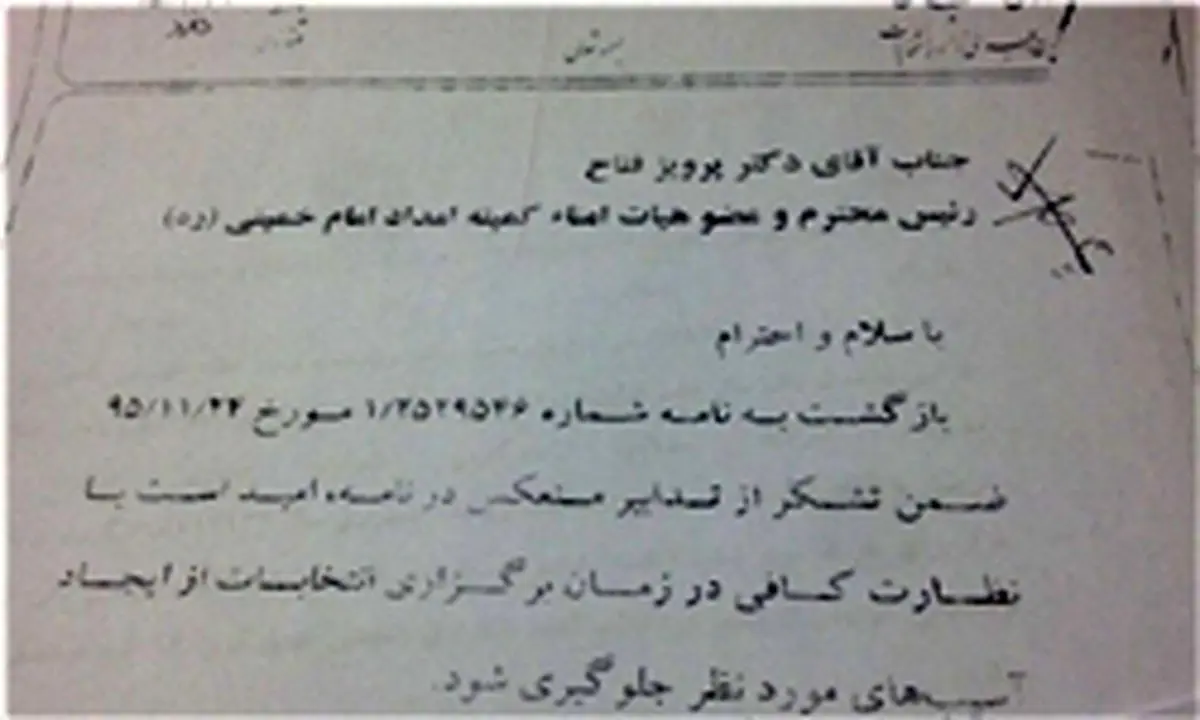 جناب آقای دکتر پرویز فتاح
رئیس محترم و عضو هیات امناء کمیته امداد امام خمینی (ره)
با سلام و احترام
بازگشت به نامه شماره مورخ ۹۵/۱۱/۲۴
ضمن تشکر از تدابیر منعکس در نامه، امید است با
نظارت کافی در زمان برگزاری انتخابات از ایجاد
آسیب‌های مورد نظر جلوگیری شود.